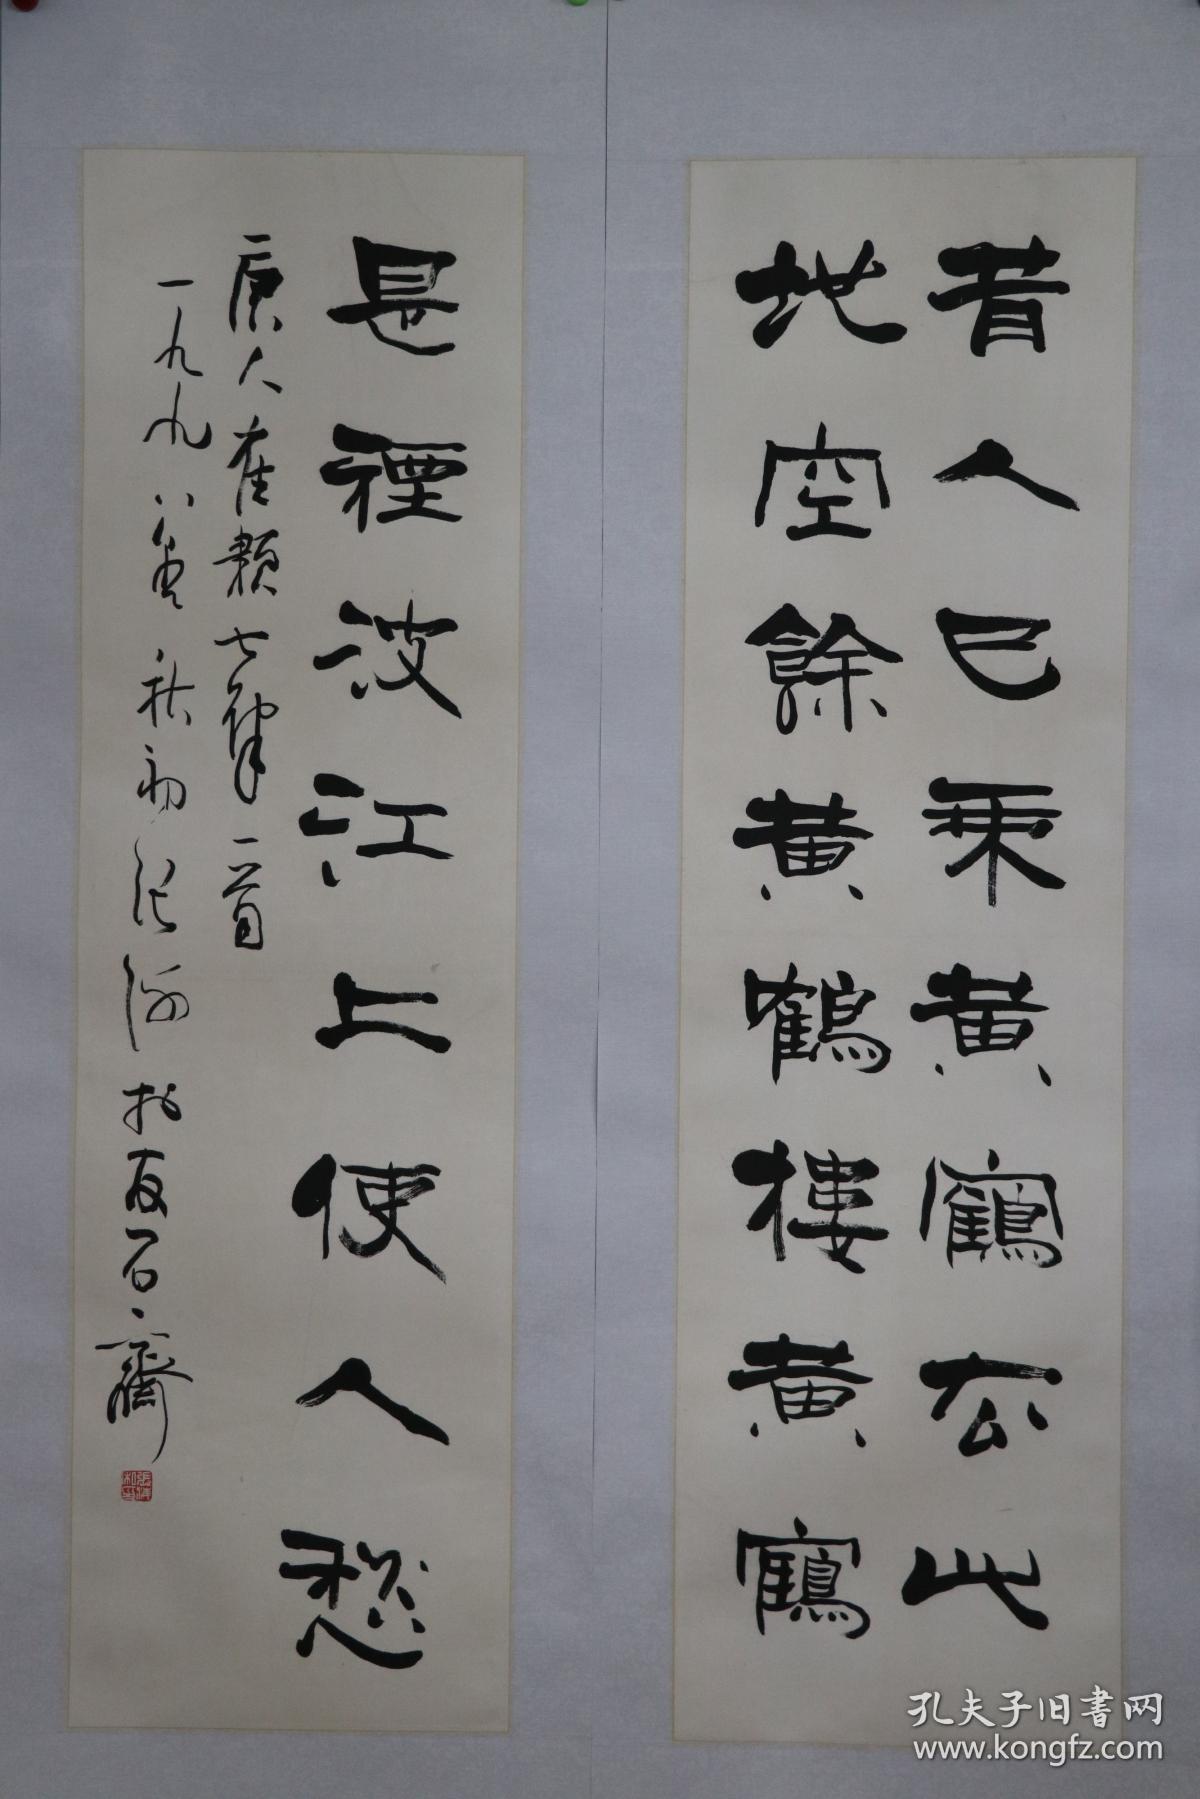 昔人已乘黄鶴去此
地空餘黄鶴樓黄鶴
是煙波江上使人愁
唐人崔颢七律一首
一九九八年秋初張海於友石齋
孔夫子旧书网
www.kongfz.com